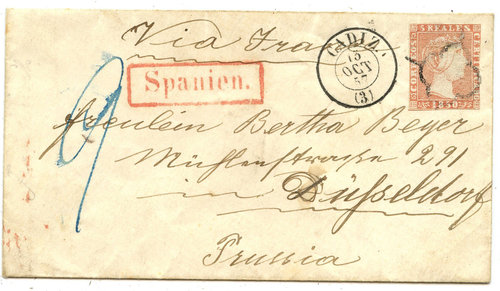 Via Fra
CADIZ.
15
OCT
57
(3)
5 REALES
CORREOS
1850
Spanien.
9
Fräulein Bertha Beyer
Mühlenstrasse 291
in Düsseldorf
Prussia